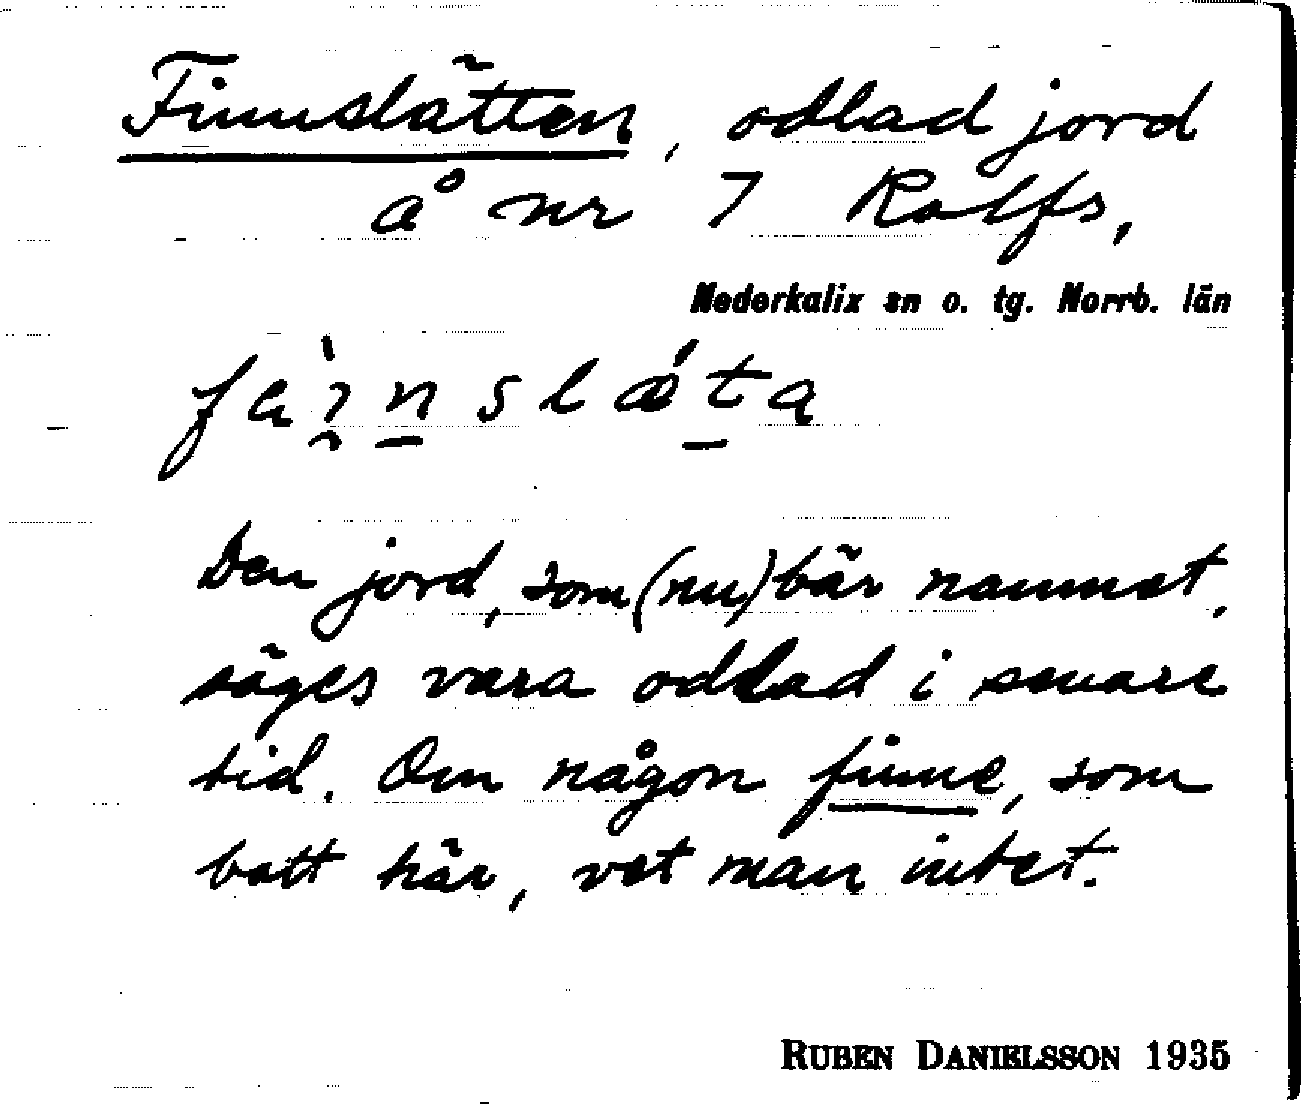 Finnslätten, odlad jord
å nr 7 Rolfs,
Nederkalix sn o. tg. Norrb. län
Den jord, som (nu) bär namnet,
säges vara odlad i senare
tid. Om någon finne, som
bott här, vet man intet.
RUBEN DANIELSSON 1935